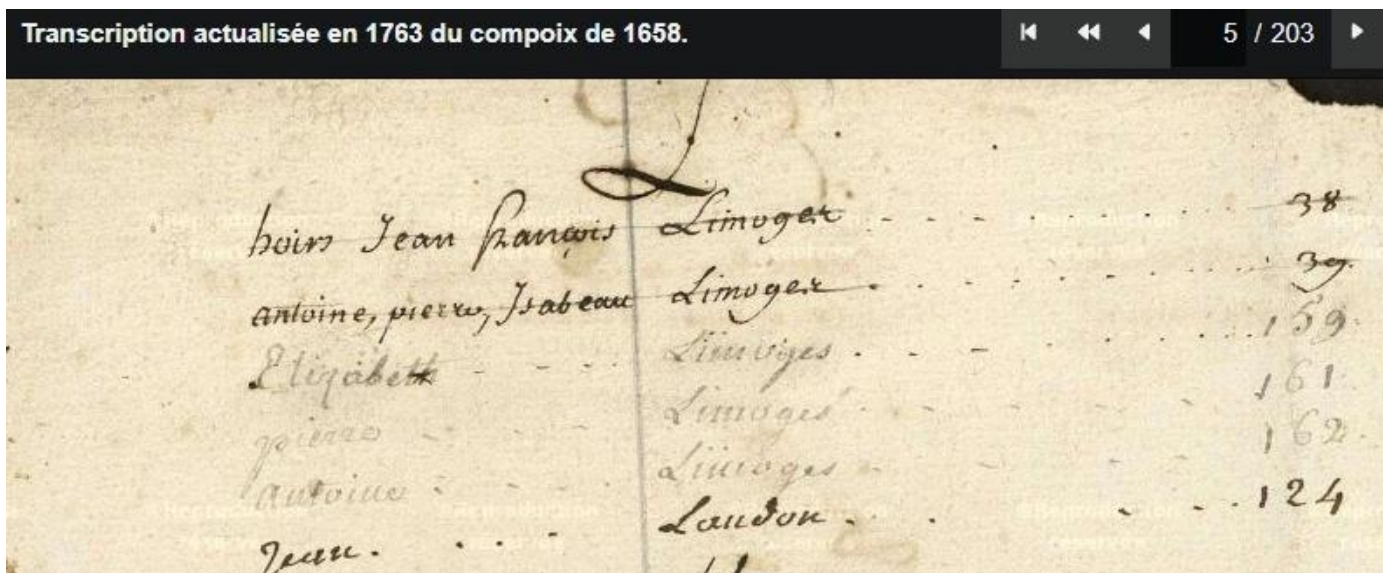 Transcription actualisée en 1763 du compoix de 1658.
5 / 203
L
hoirs Jean françois Limoges - - - . . . . . . . 38
antoine, pierre, Isabeau Limoges . . . . . . . . 39.
Elizabeth - - - . . Limoges . . . - . . . . . 159.
pierre - - - Limoges - - - - - - 161.
antoine - - - Limoges - - - - - - 162.
Jean. . . . . Laudon . . - . . 124